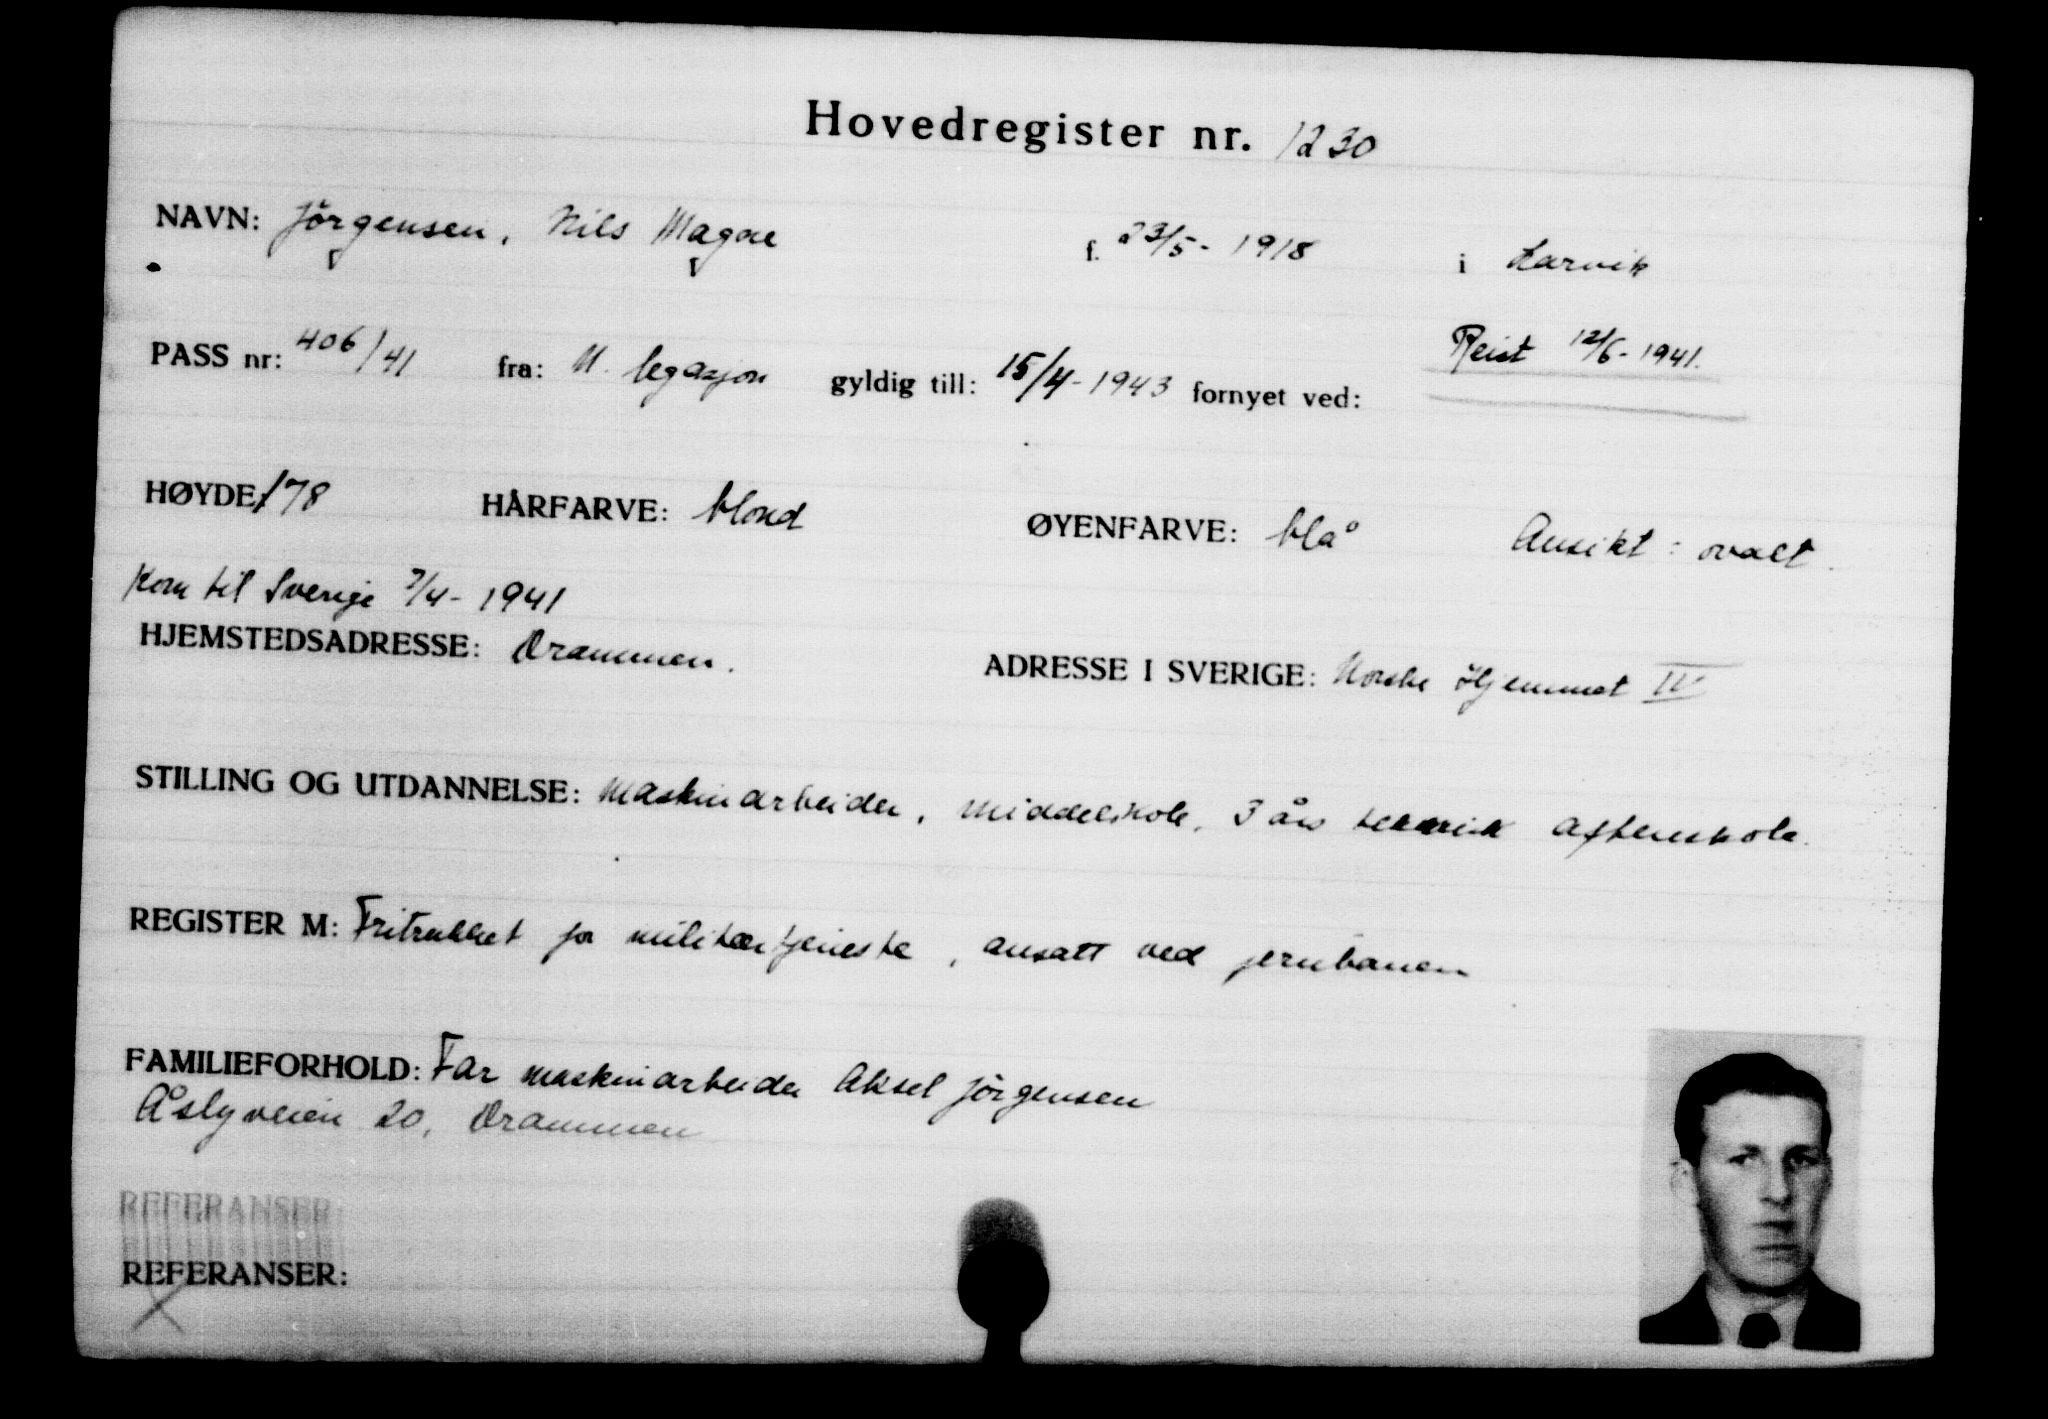 Hovedregister nr. 1230
NAVN: Jörgensen, Nils Magne f. 23/5- 1918 i Larvik
Reist 12/6- 1941.
PASS nr: 406/41 fra: N. legasjon gyldig till: 15/4-1943 fornyet ved:
HØYDE: 178 HÅRFARVE: blond ØYENFARVE: blå Ansikt: ovalt.
Kom til Sverige 7/4- 1941
HJEMSTEDSADRESSE: Drammen. ADRESSE I SVERIGE: Norske Hjemmet
STILLING OG UTDANNELSE: Maskinarbeider, middelskole, 3 års teknisk aftenskole.
REGISTER M: Fritrukket for militærtjeneste, ansatt ved jernbanen
FAMILIEFORHOLD: Far maskinarbeider Aksel Jörgensen
Åslyveien 20, Drammen
REFERANSER:
REFERANSER: